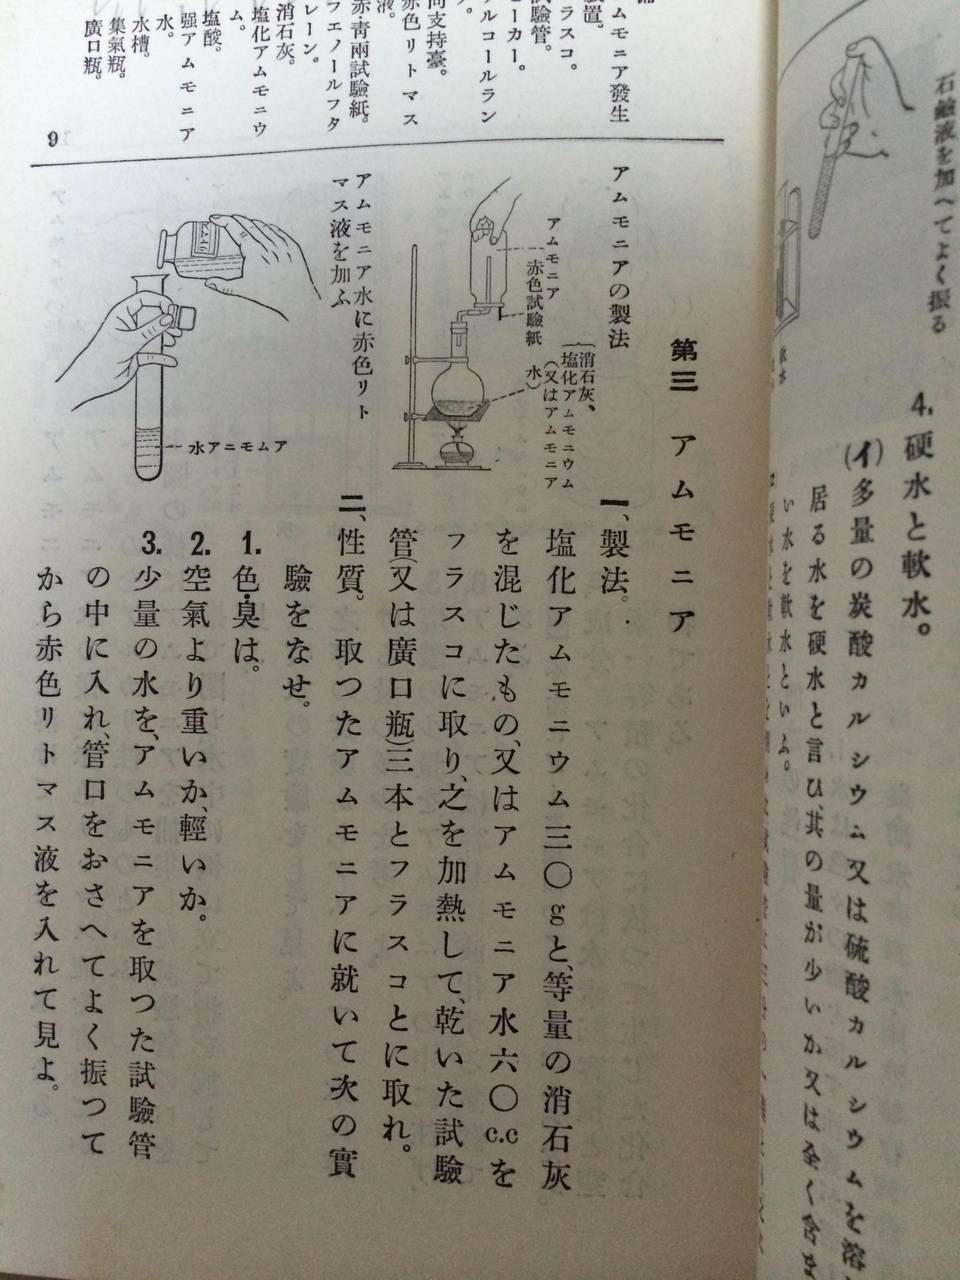 石鹼液を加へてよく振る
4. 硬水と軟水。
(イ)多量の炭酸カルシウム又は硫酸カルシウムを溶
居る水を硬水と言ひ、其の量が少いか又は全く含ま
い水を軟水といふ。
アムモニア發生
装置。
フラスコ。
試驗管。
ビーカー。
アルコールラン
プ。
同支持臺。
赤色リトマス
液。
赤・靑兩試驗紙。
フエノールフタ
レーン。
消石灰。
塩化アムモニウ
ム。
塩酸。
强アムモニア
水。
水槽。
集氣瓶。
廣口瓶。
9
第三 アムモニア
アムモニアの製法
アムモニア
赤色試驗紙
消石灰、
塩化アムモニウム
(又はアムモニア
水)
アムモニア水に赤色リト
マス液を加ふ
水アニモムア
一、製法。
塩化アムモニウム三〇gと、等量の消石灰
を混じたもの、又はアムモニア水六〇c.cを
フラスコに取り、之を加熱して、乾いた試驗
管(又は廣口瓶)三本とフラスコとに取れ。
二、性質。 取つたアムモニアに就いて次の實
驗をなせ。
1. 色・臭は。
2. 空氣より重いか、輕いか。
3. 少量の水を、アムモニアを取つた試驗管
の中に入れ、管口をおさへてよく振つて
から赤色リトマス液を入れて見よ。